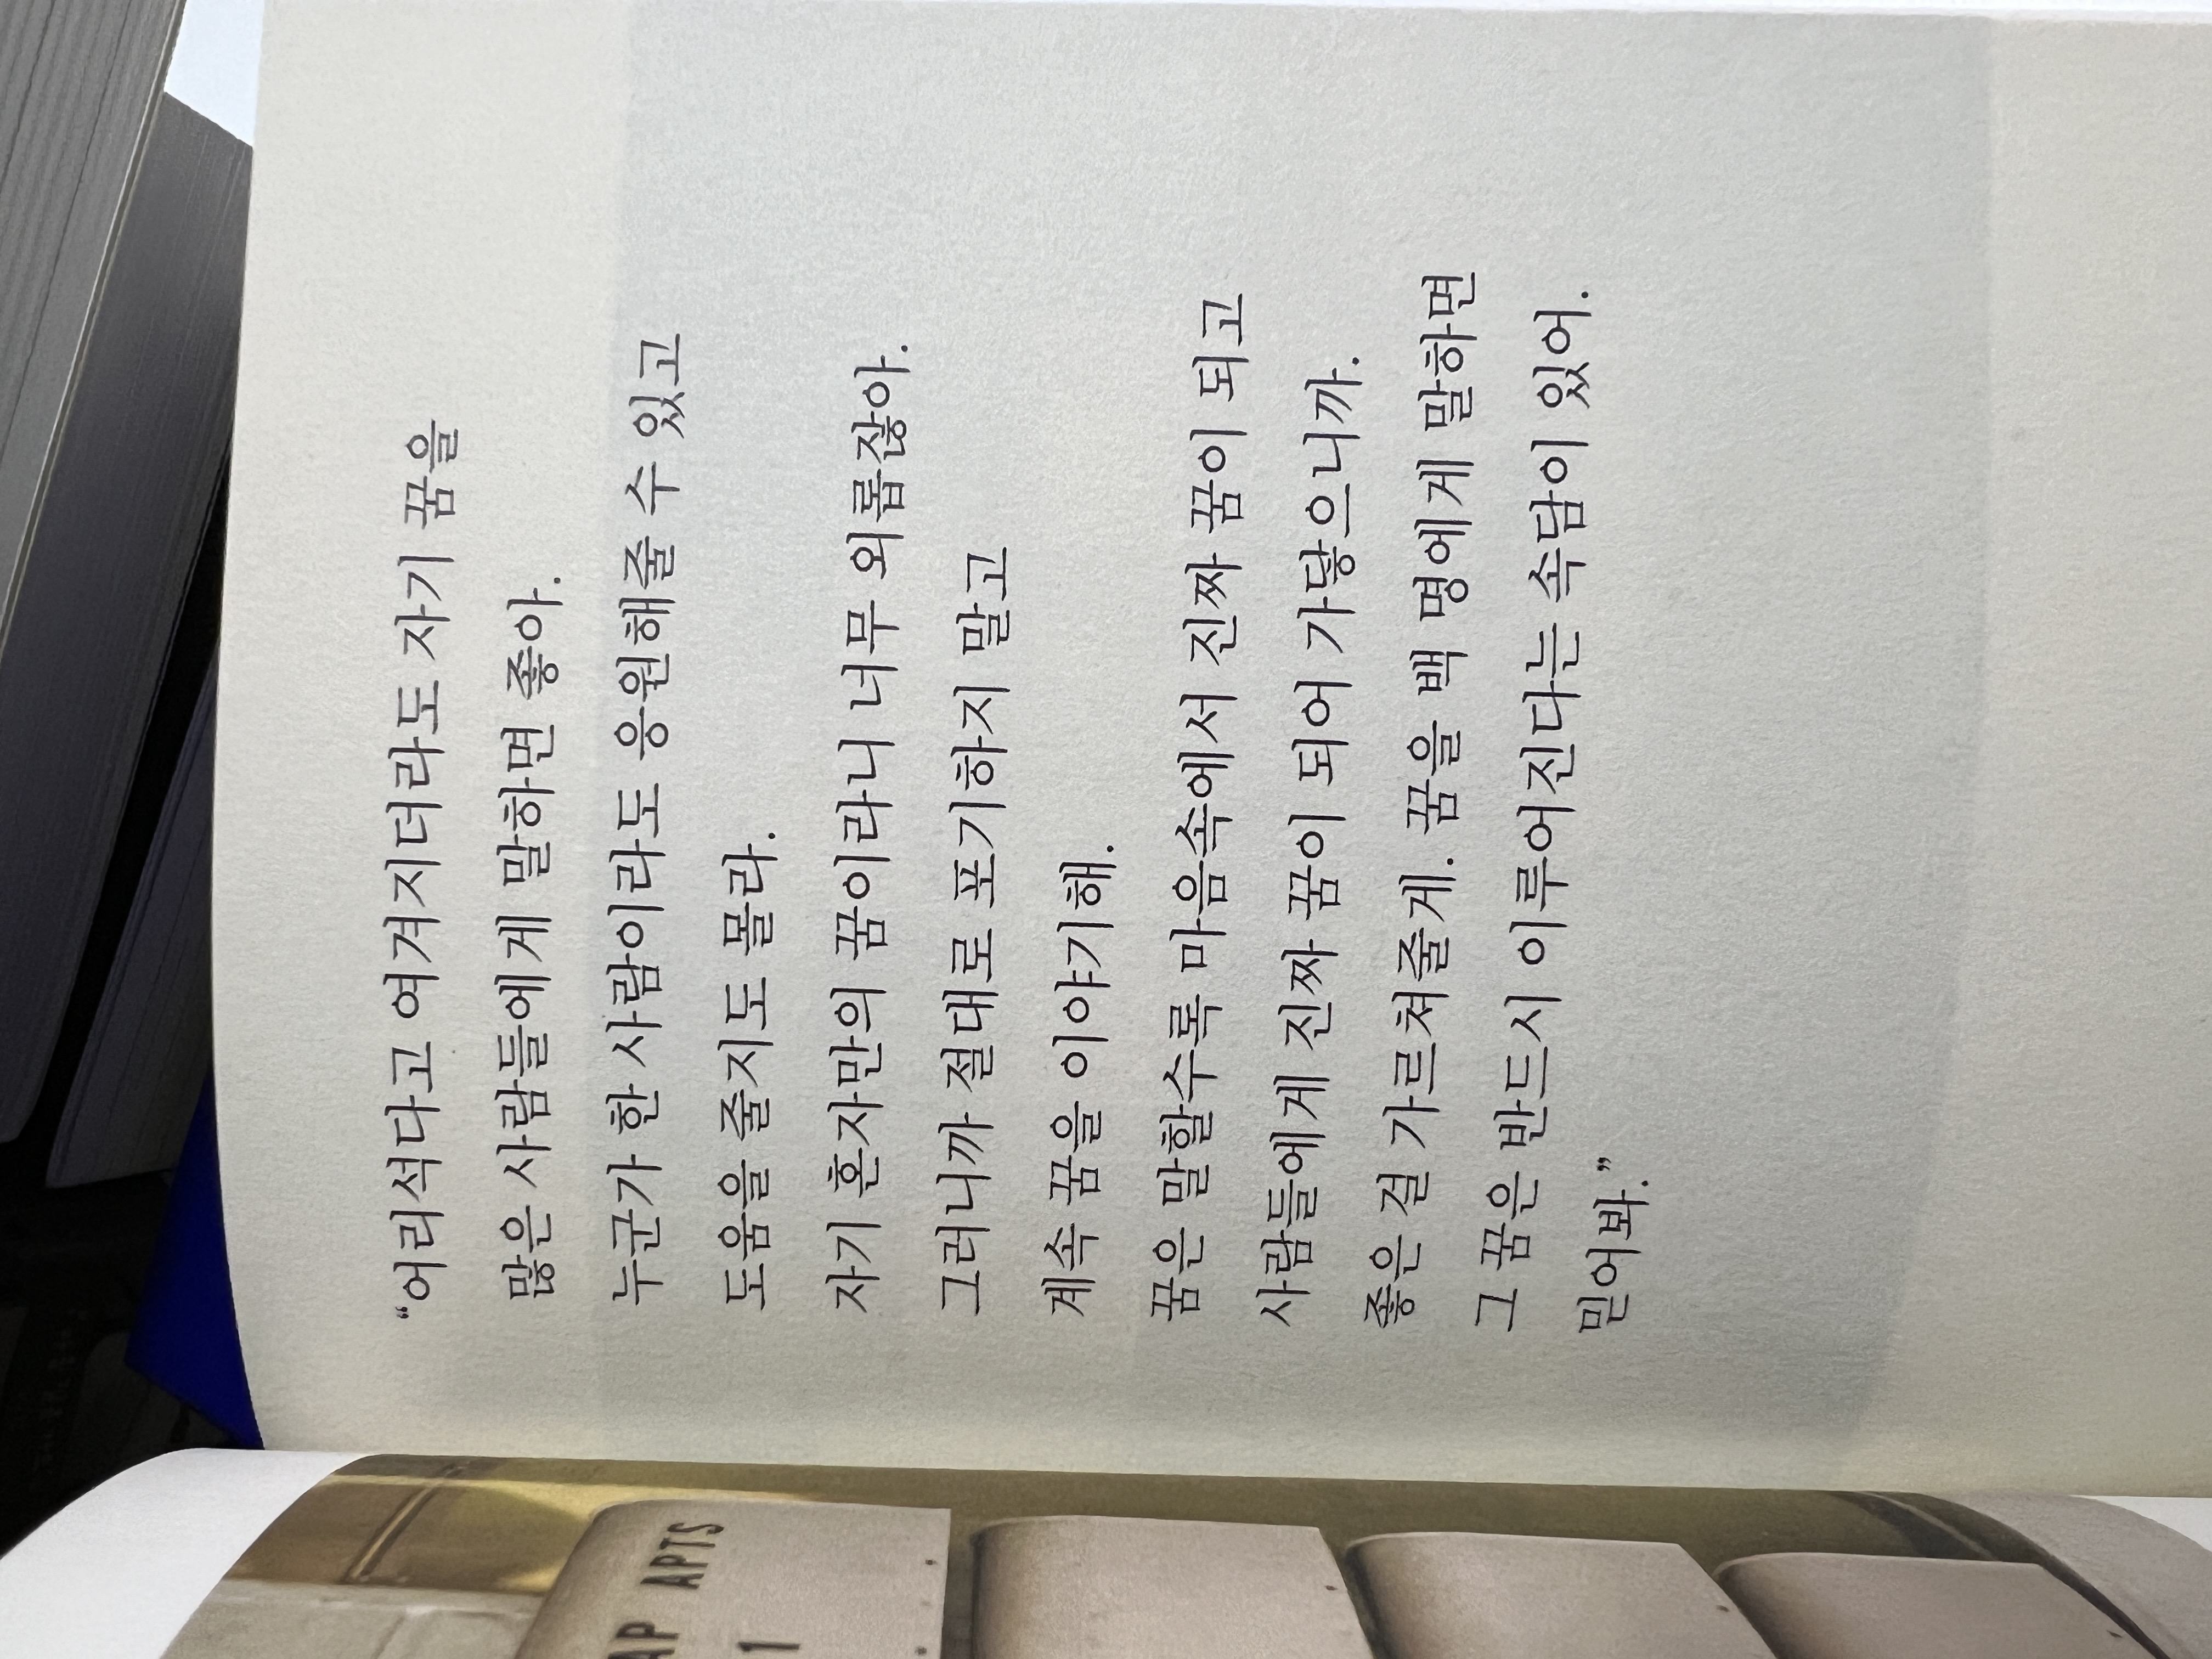 “어리석다고 여겨지더라도 자기 꿈을
많은 사람들에게 말하면 좋아.
누군가 한 사람이라도 응원해줄 수 있고
도움을 줄지도 몰라.
자기 혼자만의 꿈이라니 너무 외롭잖아.
그러니까 절대로 포기하지 말고
계속 꿈을 이야기해.
꿈은 말할수록 마음속에서 진짜 꿈이 되고
사람들에게 진짜 꿈이 되어 가닿으니까.
좋은 걸 가르쳐줄게. 꿈을 백 명에게 말하면
그 꿈은 반드시 이루어진다는 속담이 있어.
믿어봐.”
APTS
1